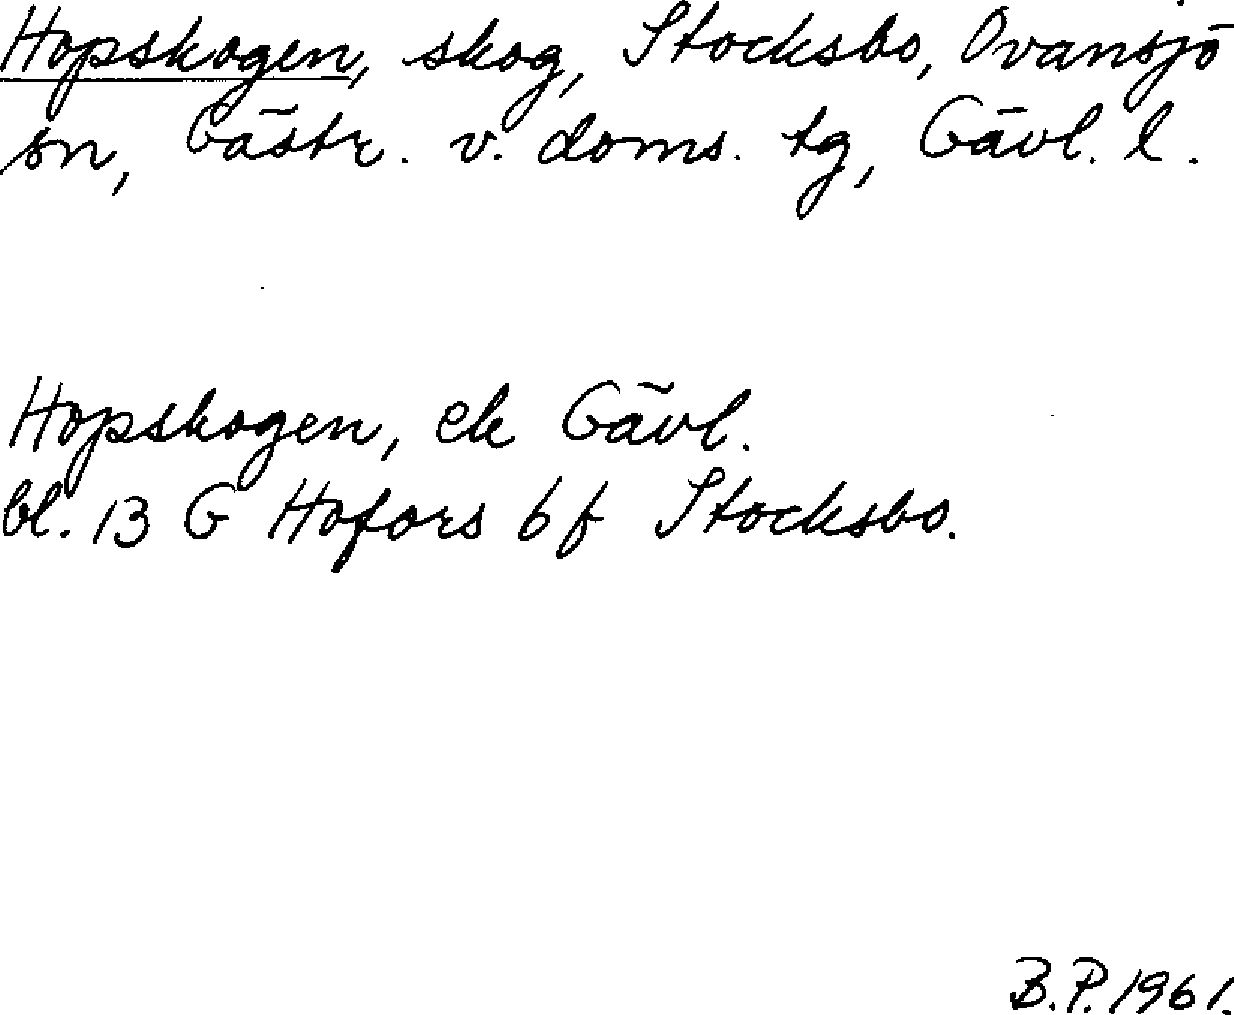 Hopskogen, skog, Stocksbo, Ovansjö
sn, Gästr. v. doms. tg, Gävl. l.
Hopskogen, ek Gävl.
bl. 13 G Hofors 6 f Stocksbo.
B.P. 1961.